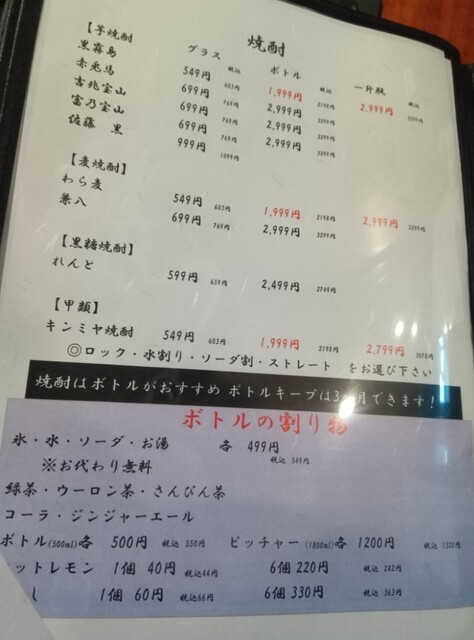 焼酎
グラス 税込 ボトル 税込 一升瓶 税込
【芋焼酎】
黒霧島 549円 603円 1,999円 2198円 2,999円 3299円
赤兎馬 699円 769円 2,999円 3299円
吉兆宝山 699円 769円 2,999円 3299円
富乃宝山 699円 769円 2,999円 3299円
佐藤 黒 999円 1099円
【麦焼酎】
わら麦 549円 603円 1,999円 2198円 2,999円 3299円
兼八 699円 769円 2,999円 3299円
【黒糖焼酎】
れんと 599円 659円 2,499円 2749円
【甲類】
キンミヤ焼酎 549円 603円 1,999円 2198円 2,799円 3078円
◎ロック・水割り・ソーダ割・ストレート をお選び下さい
焼酎はボトルがおすすめ ボトルキープは3ヶ月できます！
ボトルの割り物
氷・水・ソーダ・お湯 各 499円 税込 549円
※お代わり無料
緑茶・ウーロン茶・さんぴん茶
コーラ・ジンジャーエール
ボトル(500ml)各 500円 税込 550円 ピッチャー(1800ml)各 1200円 税込 1320円
ットレモン 1個 40円 税込44円 6個 220円 税込 242円
し 1個 60円 税込66円 6個 330円 税込 363円